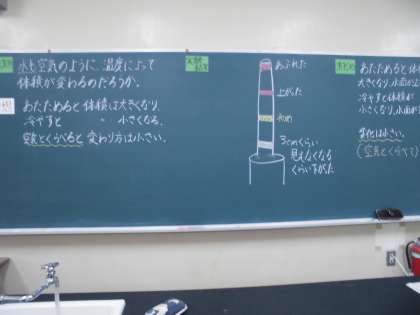 水も空気のように、温度によって
体積が変わるのだろうか。
あたためると体積は大きくなり、
冷やすと 〃 小さくなる。
空気とくらべると変わり方は小さい。
実験
あふれた
上がった
はじめ
3cmくらい
見えなくなる
くらい下がった
まとめ
あたためると体
大きくなり、水面が上
冷やすと体積が
小さくなり、水面が
変化は小さい。
(空気とくらべて)